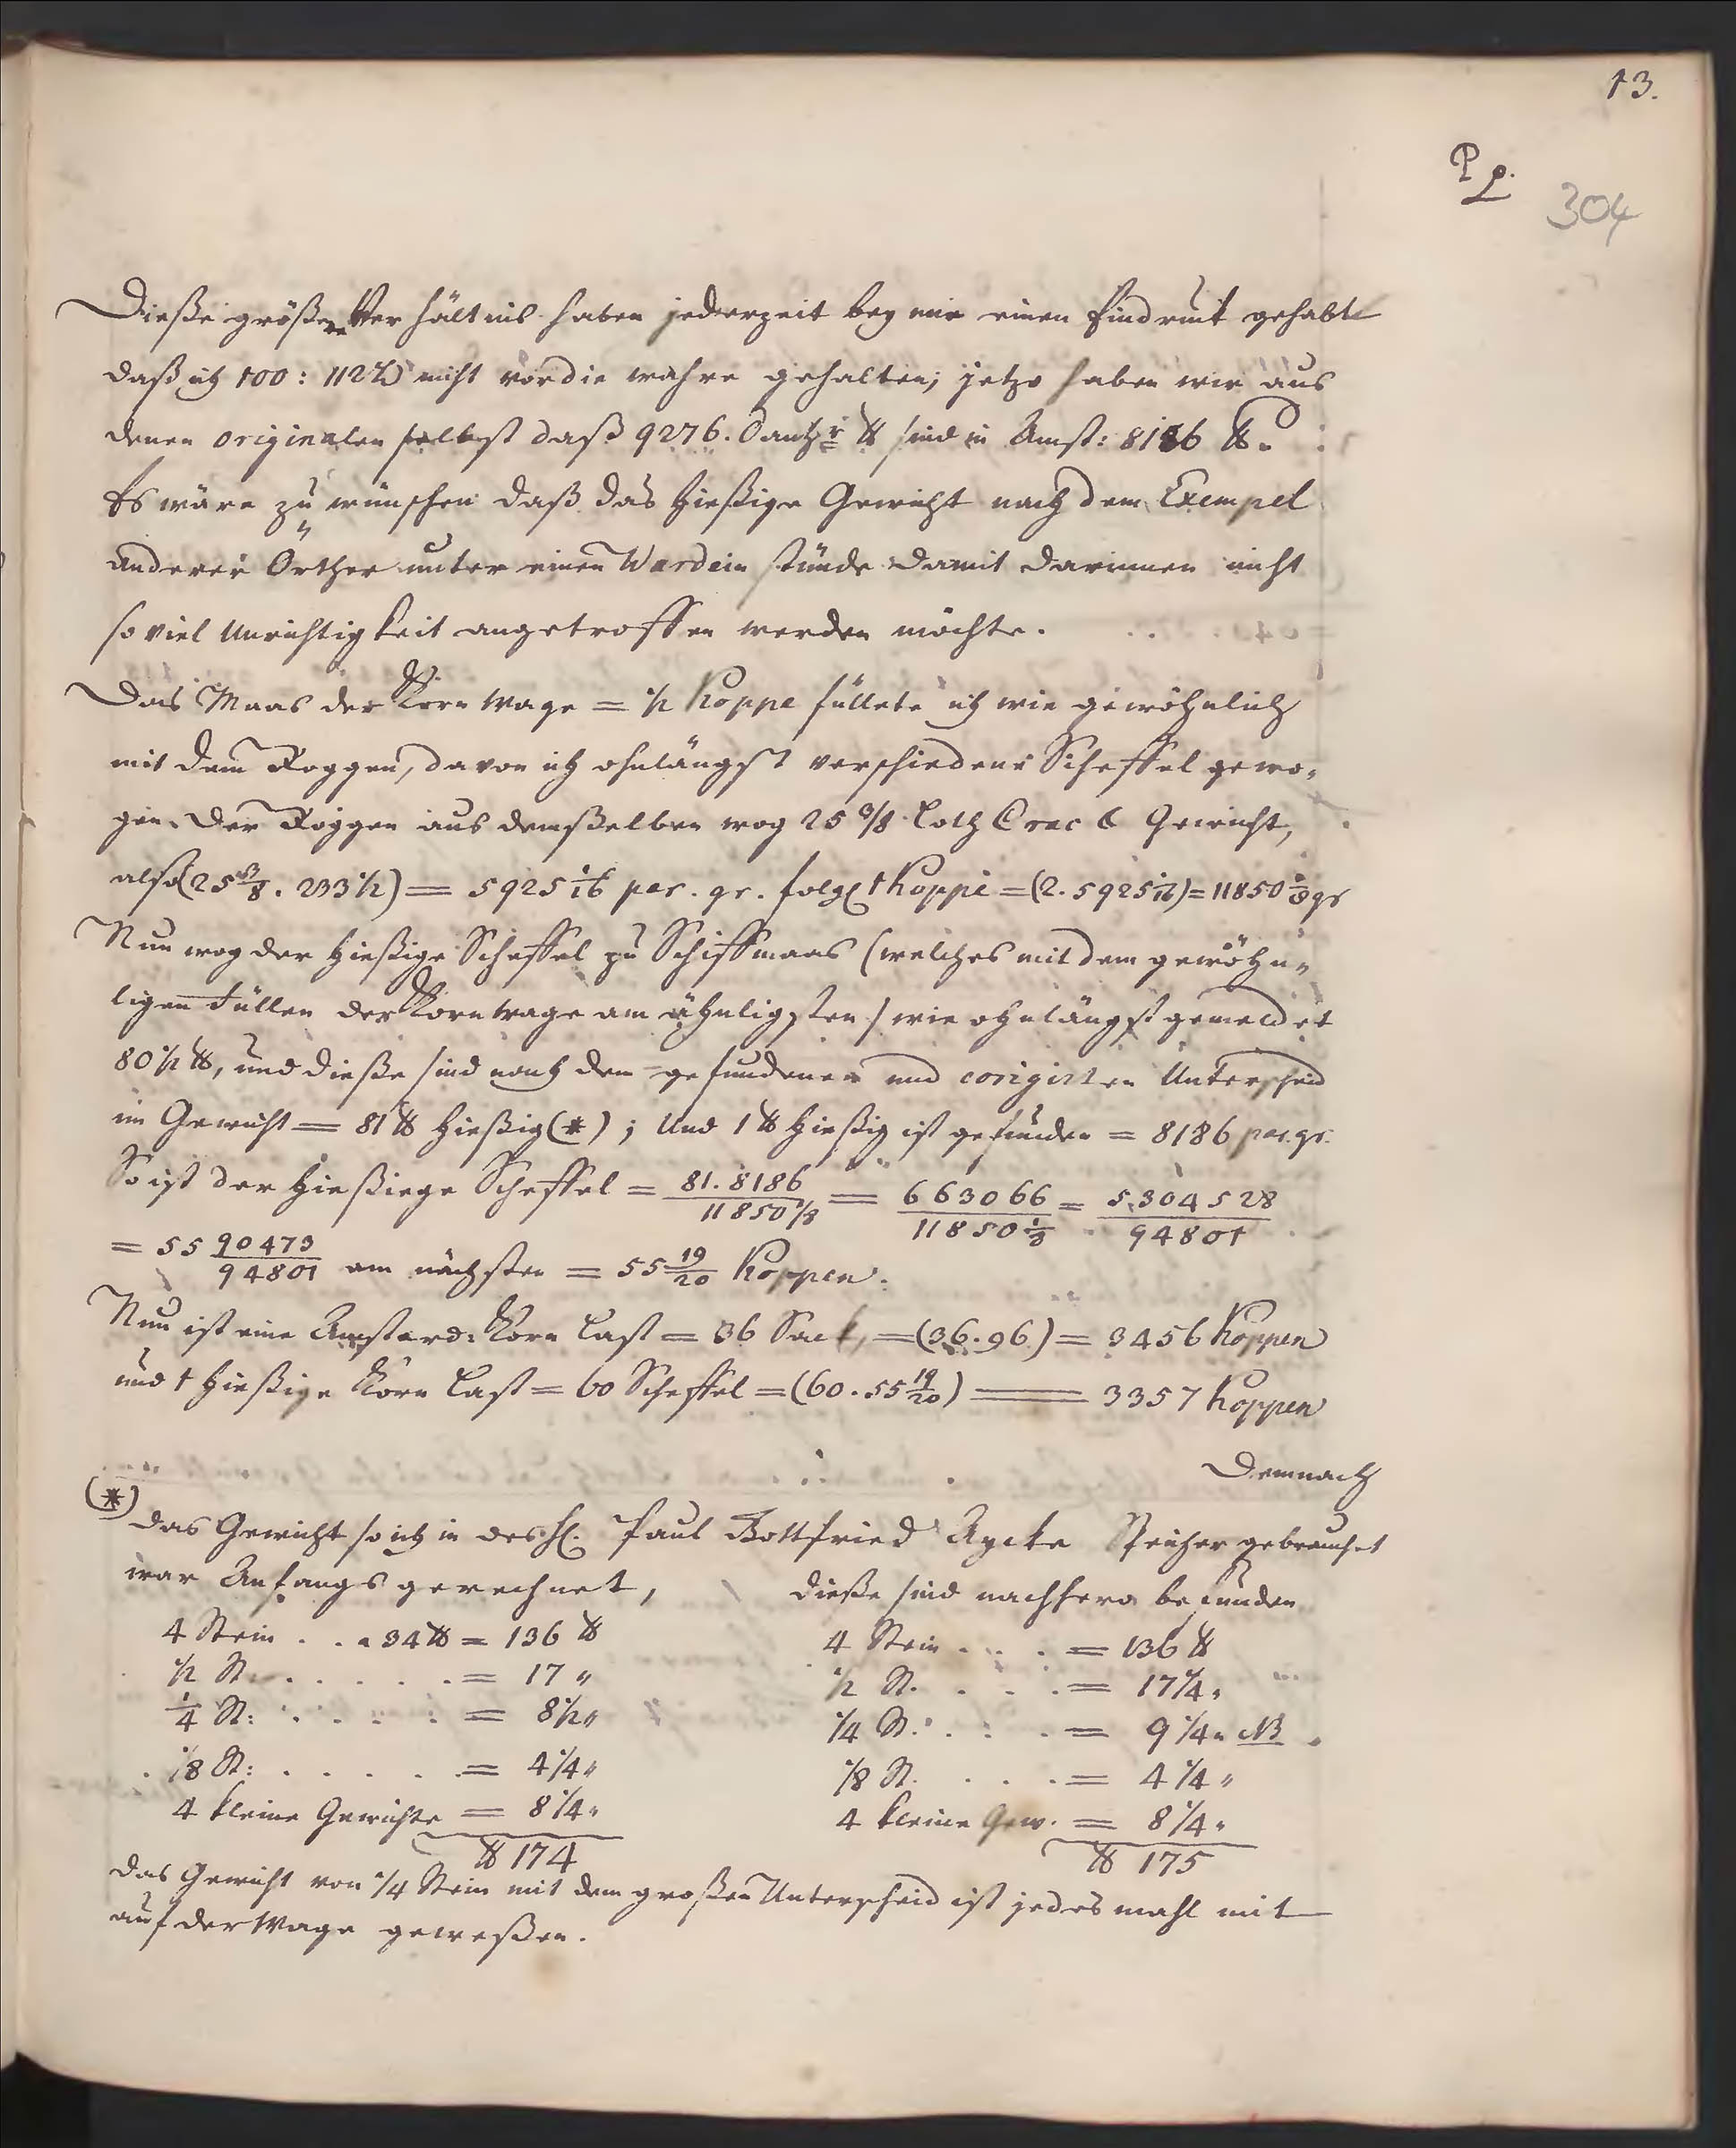 13.
P p.
304
Dieße größere Verhältnis haben jederzeit bey mir einen Eindruck gehabt
daß ich 100 : 112½ nicht vor die wahre gehalten; jetzo haben wir aus
denen originalen selbst daß 9276. Dantzr ℔ sind in Amst: 8186 ℔.
Es wäre zu wünschen daß das hießige Gewicht nach dem Exempel
anderer Örther unter einen Wardein stünde damit darinnen nicht
so viel Unrichtigkeit angetroffen werden möchte.
Das Maas der Korn Wage = ½ Koppe füllete ich wie gewöhnlich
mit dem Roggen, davon ich ohnlängst verschiedene Scheffel gewo-
gen. Der Roggen aus demßelben wog 25 3/8 Loth Crac C Gewicht,
also (25 3/8 . 233½) = 5925 1/16 par. gr. folgl 1 Koppe = (2. 5925 1/16) = 11850 1/8 gr
Nun wog der hießige Scheffel zu Schiffmaas (welches mit dem gewöhn-
ligen Füllen der Korn Wage am ähnligsten) wie ohnlängst gemeldet
80½ ℔, und dieße sind nach dem gefundenen und corigirten Unterscheid
im Gewicht = 81 ℔ hießig (*) ; Und 1 ℔ hießig ist gefunden = 8186 par. gr.
So ist der hießiege Scheffel = 81. 8186 / 11850 1/8 = 663066 / 11850 1/8 = 5304528 / 94801
= 55 90473/94801 am nächsten = 55 19/20 Koppen.
Nun ist eine Amsterd: Korn Last = 36 Sack, = (36. 96) = 3456 Koppen
und 1 hießige Korn Last = 60 Scheffel = (60. 55 19/20) = 3357 Koppen
Demnach
(*) Das Gewicht so ich in des H. Paul Gottfried Aycke Speicher gebraucht
war Anfangs gerechnet, dieße sind nachhero befunden
4 Stein . . a 34 ℔ = 136 ℔ 4 Stein . . . = 136 ℔
½ St. . . . . . = 17 " ½ St. . . . = 17¼ "
¼ St: . . . . = 8½ " ¼ St. . . . = 9¼ " NB
1/8 St: . . . . . = 4¼ " 1/8 St. . . . = 4¼ "
4 kleine Gewichte = 8¼ " 4 kleine Gew. = 8¼ "
℔ 174 ℔ 175
Das Gewicht von ¼ Stein mit dem großen Unterscheid ist jedes mahl mit
auf der Wage geweßen.